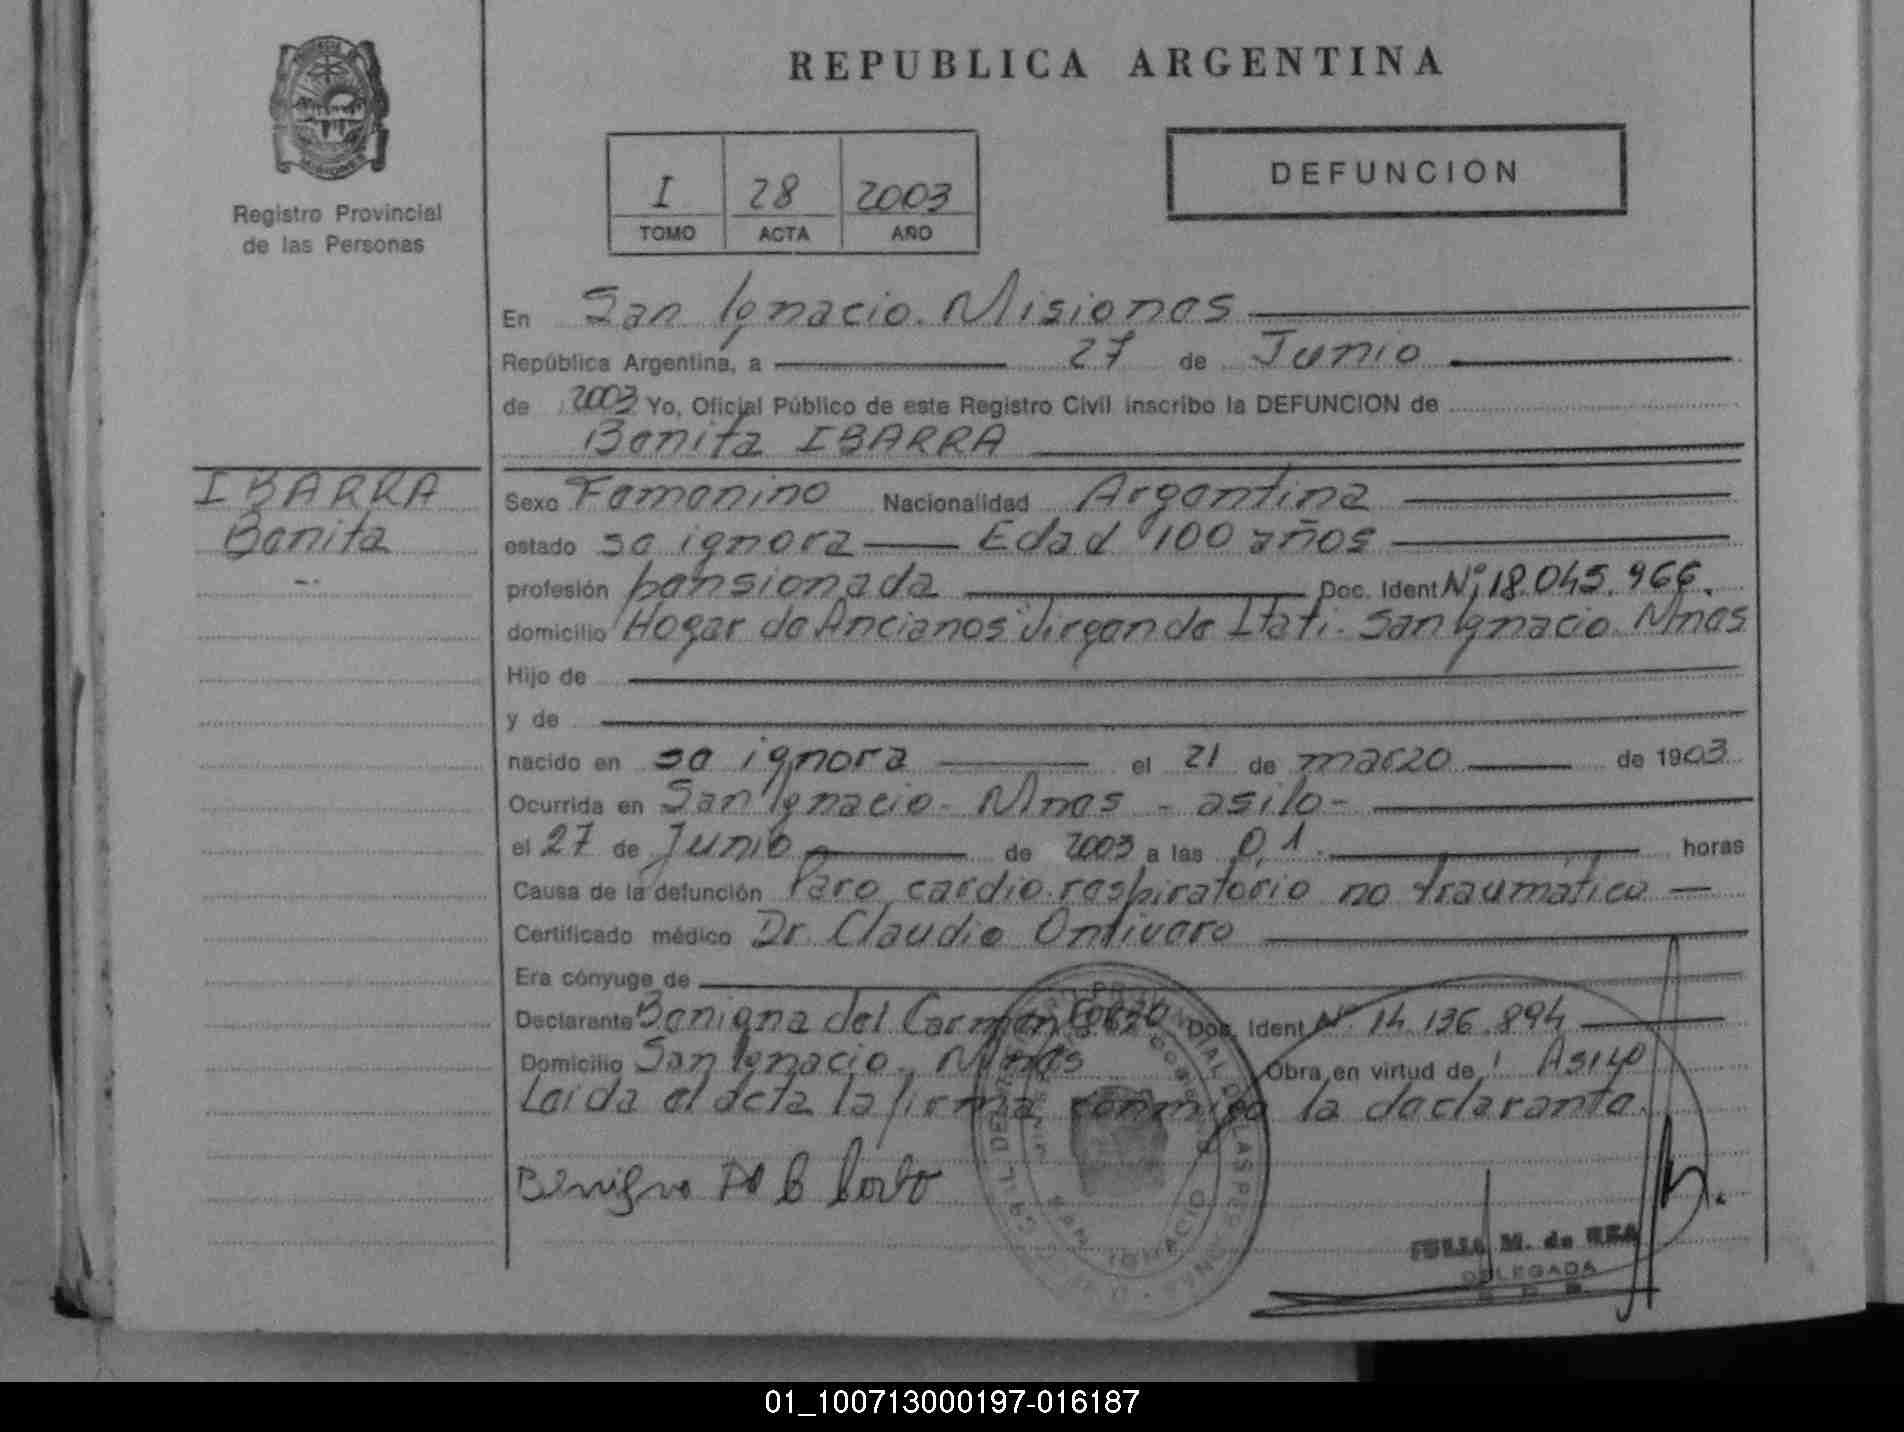 REPUBLICA ARGENTINA
Registro Provincial
de las Personas
I 28 2003
TOMO ACTA AÑO
DEFUNCION
En San Ignacio. Misiones
República Argentina, a 27 de Junio
de 2003 Yo, Oficial Público de este Registro Civil inscribo la DEFUNCION de
Benita IBARRA
IBARRA
Benita
Sexo Femenino Nacionalidad Argentina
estado se ignora Edad 100 años
profesión pensionada Doc. Ident Nº 18.045.966.
domicilio Hogar de Ancianos Virgen de Itati. San Ignacio Mnes
Hijo de
y de
nacido en se ignora el 21 de marzo de 1903
Ocurrida en San Ignacio - Mnes - asilo -
el 27 de Junio de 2003 a las 0,1 horas
Causa de la defunción Paro cardio respiratorio no traumatico
Certificado médico Dr. Claudio Ontivero
Era cónyuge de
Declarante Benigna del Carmen Doc. Ident Nº 14.136.894
Domicilio San Ignacio. Mnes Obra en virtud de Asilo
Leida el acta la firma conmigo la declarante.
Benigna
SAN IGNACIO
JULIA M. de REA
DELEGADA
01_100713000197-016187